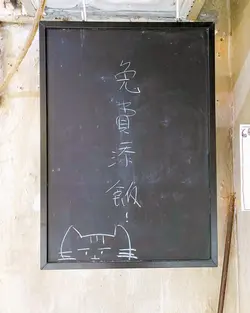 免費添飯!